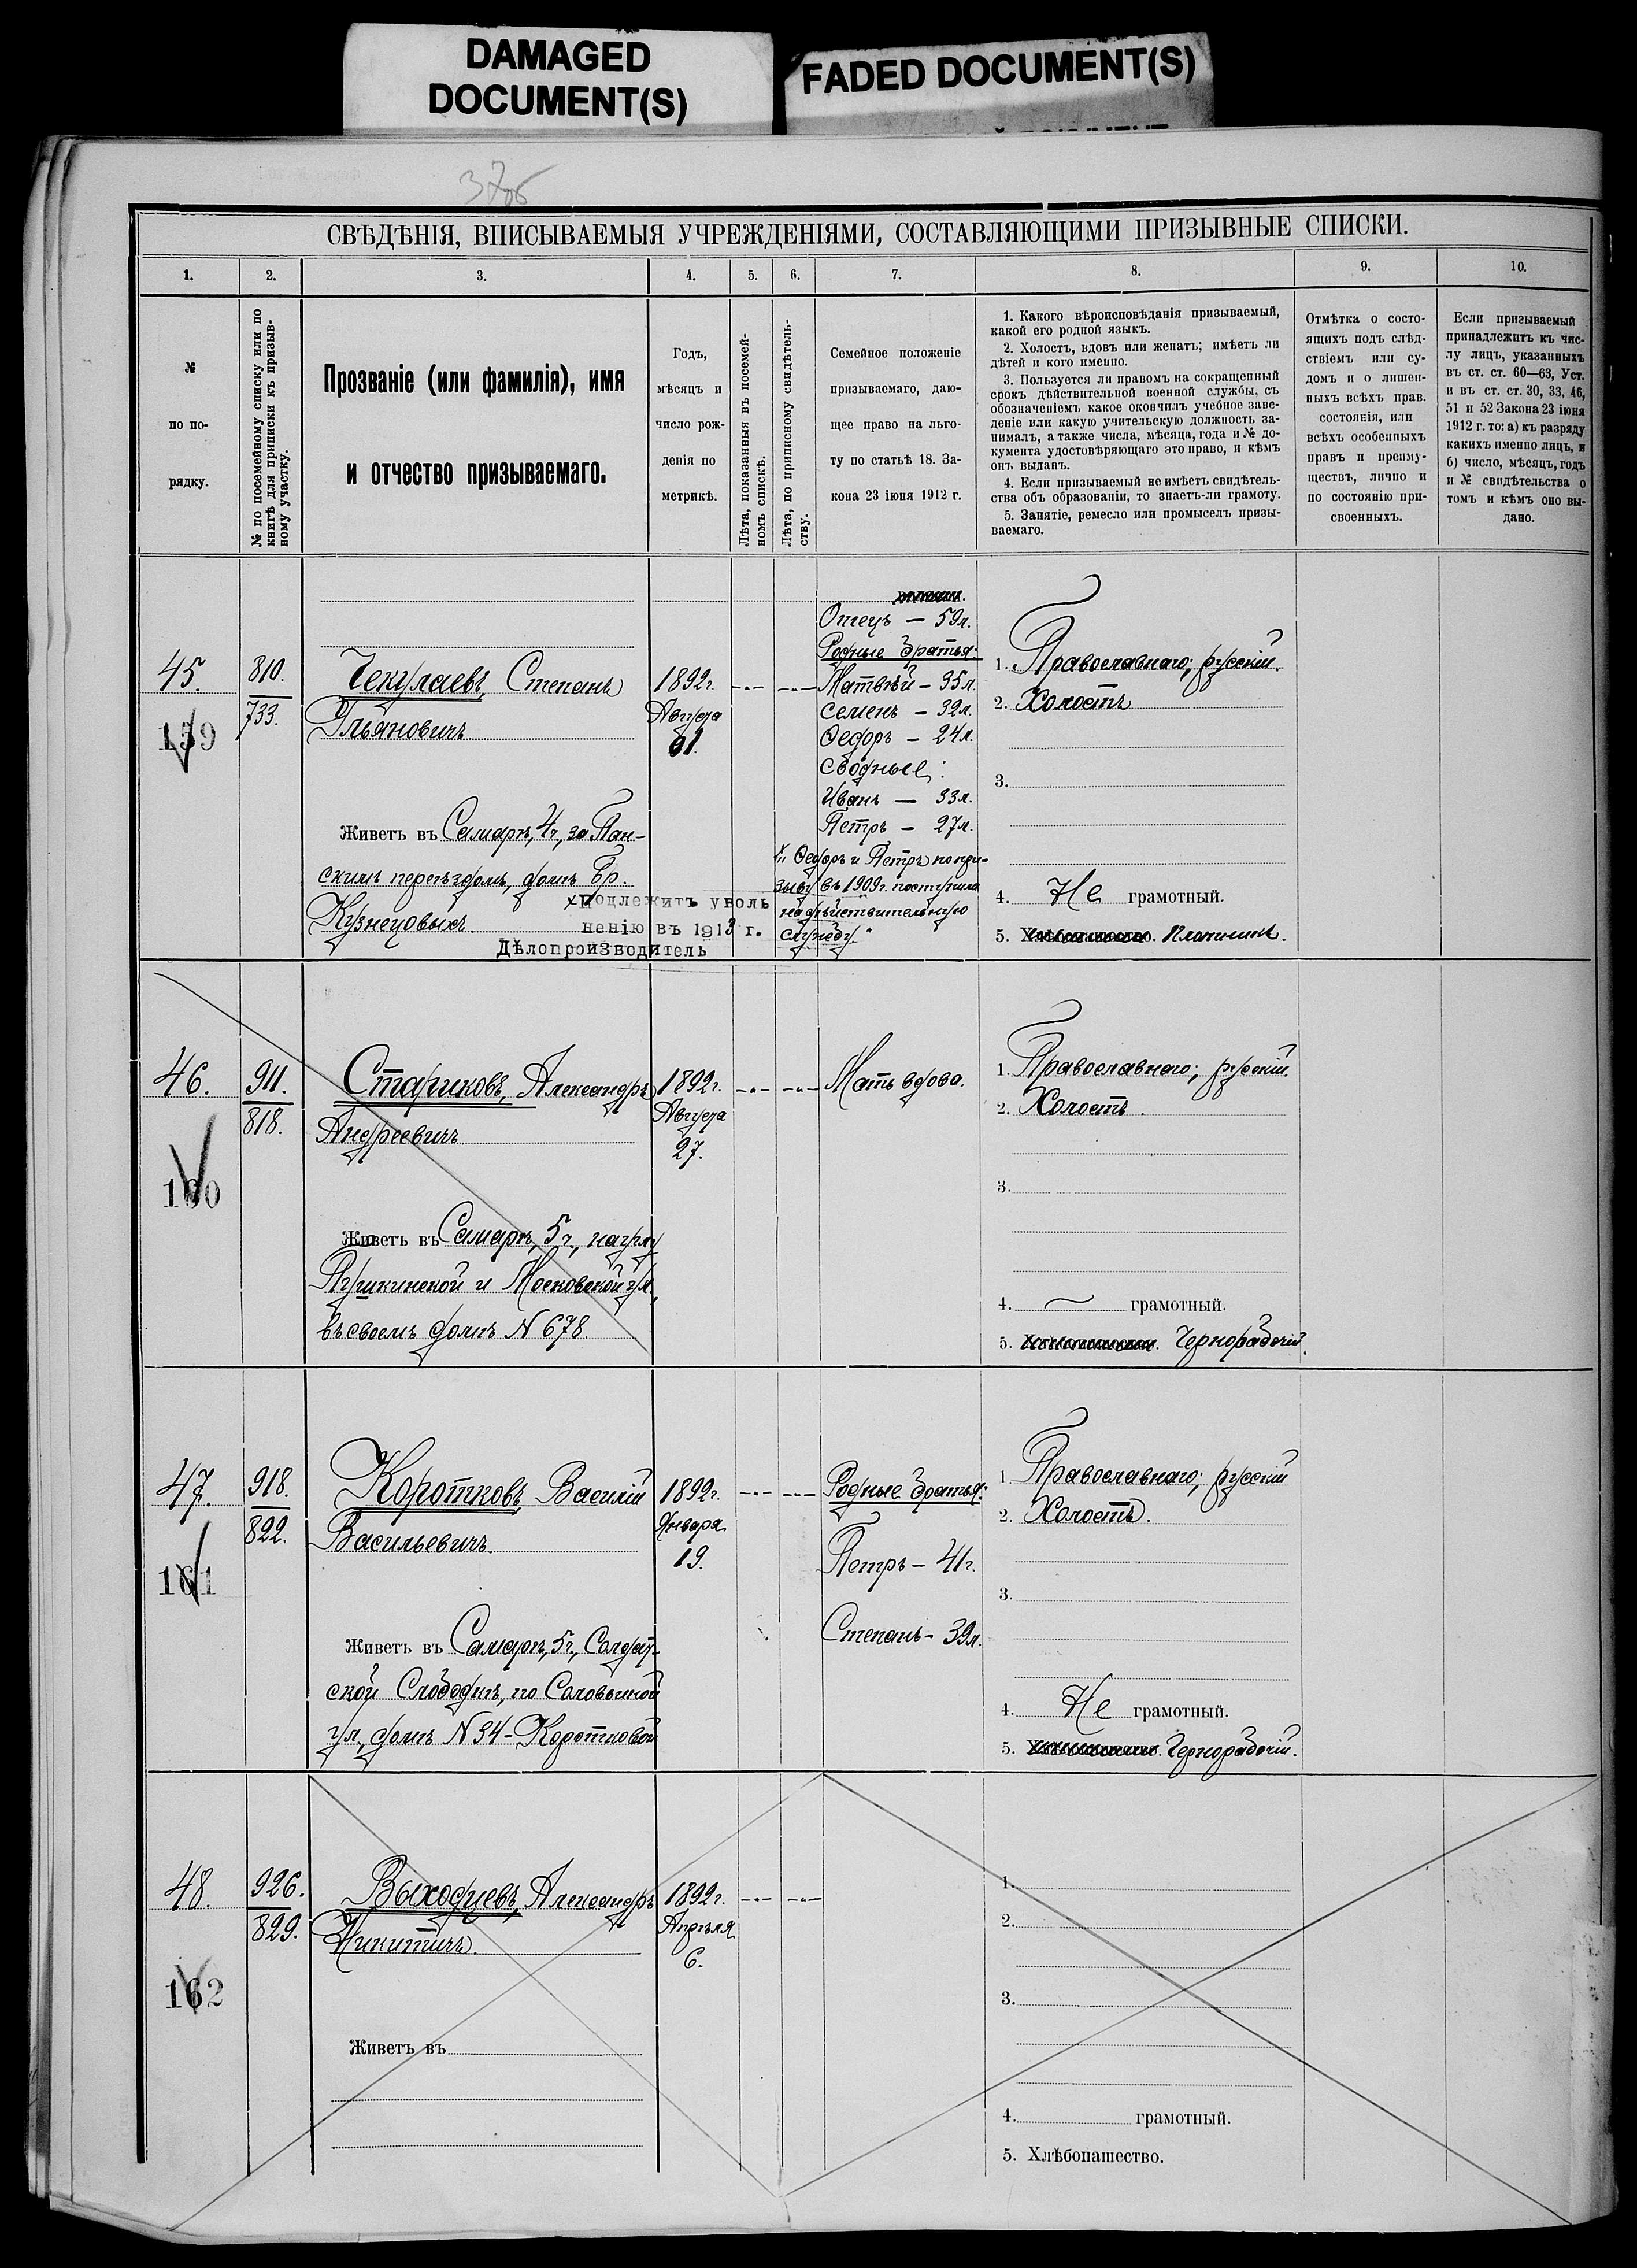 DAMAGED
DOCUMENT(S)
FADED DOCUMENT(S)
37об
СВѢДѢНІЯ, ВПИСЫВАЕМЫЯ УЧРЕЖДЕНІЯМИ, СОСТАВЛЯЮЩИМИ ПРИЗЫВНЫЕ СПИСКИ.
1. 2. 3. 4. 5. 6. 7. 8. 9. 10.
№
по по-
рядку.
№ по посемейному списку или по
книгѣ для приписки къ призыв-
ному участку.
Прозваніе (или фамилія), имя
и отчество призываемаго.
Годъ,
мѣсяцъ и
число рож-
денія по
метрикѣ.
Лѣта, показанныя въ посемей-
номъ спискѣ.
Лѣта, по приписному свидѣтель-
ству.
Семейное положеніе
призываемаго, даю-
щее право на льго-
ту по статьѣ 18. За-
кона 23 іюня 1912 г.
1. Какого вѣроисповѣданія призываемый,
какой его родной языкъ.
2. Холостъ, вдовъ или женатъ; имѣетъ ли
дѣтей и кого именно.
3. Пользуется ли правомъ на сокращенный
срокъ дѣйствительной военной службы, съ
обозначеніемъ какое окончилъ учебное заве-
деніе или какую учительскую должность за-
нималъ, а также числа, мѣсяца, года и № до-
кумента удостовѣряющаго это право, и кѣмъ
онъ выданъ.
4. Если призываемый не имѣетъ свидѣтель-
ства объ образованіи, то знаетъ-ли грамоту.
5. Занятіе, ремесло или промыселъ призы-
ваемаго.
Отмѣтка о состо-
ящихъ подъ слѣд-
ствіемъ или су-
домъ и о лишен-
ныхъ всѣхъ прав.
состоянія, или
всѣхъ особенныхъ
правъ и преиму-
ществъ, лично и
по состоянію при-
своенныхъ.
Если призываемый
принадлежитъ къ чис-
лу лицъ, указанныхъ
въ ст. ст. 60—63, Уст.
и въ ст. ст. 30, 33, 46,
51 и 52 Закона 23 іюня
1912 г. то: а) къ разряду
какихъ именно лицъ, и
б) число, мѣсяцъ, годъ
и № свидѣтельства о
томъ и кѣмъ оно вы-
дано.
45.
159
810.
733.
Чекулаевъ, Степанъ
Ульяновичъ
Живетъ въ Самарѣ, 4ч, за Пан-
скимъ переѣздомъ, домъ Бр.
Кузнецовыхъ
х подлежитъ уволь
ненію въ 1913 г.
Дѣлопроизводитель
1892г.
Августа
1.
Отецъ — 59л.
Родные братья:
Матвѣй — 35л.
Семенъ — 32л.
Ѳедоръ — 24л.
Сводные:
Иванъ — 33л.
Петръ — 27л.
х" Ѳедоръ и Петръ по при-
зыву въ 1909г. поступили
на дѣйствительную
службу."
1. Православнаго; русскій.
2. Холостъ
3.
4. Не грамотный.
5. Плотникъ.
46.
160
911.
818.
Стариковъ, Александръ
Андреевичъ
Живетъ въ Самарѣ, 5ч, на углу
Пушкинской и Московской ул.,
въ своемъ домѣ N 678.
1892г.
Августа
27.
Мать вдова.
1. Православнаго; русскій
2. Холостъ.
3.
4. — грамотный.
5. Чернорабочій.
47.
161
918.
822.
Коротковъ Василій
Васильевичъ
Живетъ въ Самарѣ, 5ч, Солдат-
ской Слободкѣ, по Соловьиной
ул., домъ N 34 - Коротковой
1892г.
Января
19.
Родные братья:
Петръ — 41г.
Степанъ — 39л.
1. Православнаго; русскій
2. Холостъ.
3.
4. Не грамотный.
5. Чернорабочій.
48.
162
926.
829.
Выходцевъ, Александръ
Никитичъ
Живетъ въ
1892г.
Апрѣля
6.
1.
2.
3.
4. грамотный.
5. Хлѣбопашество.